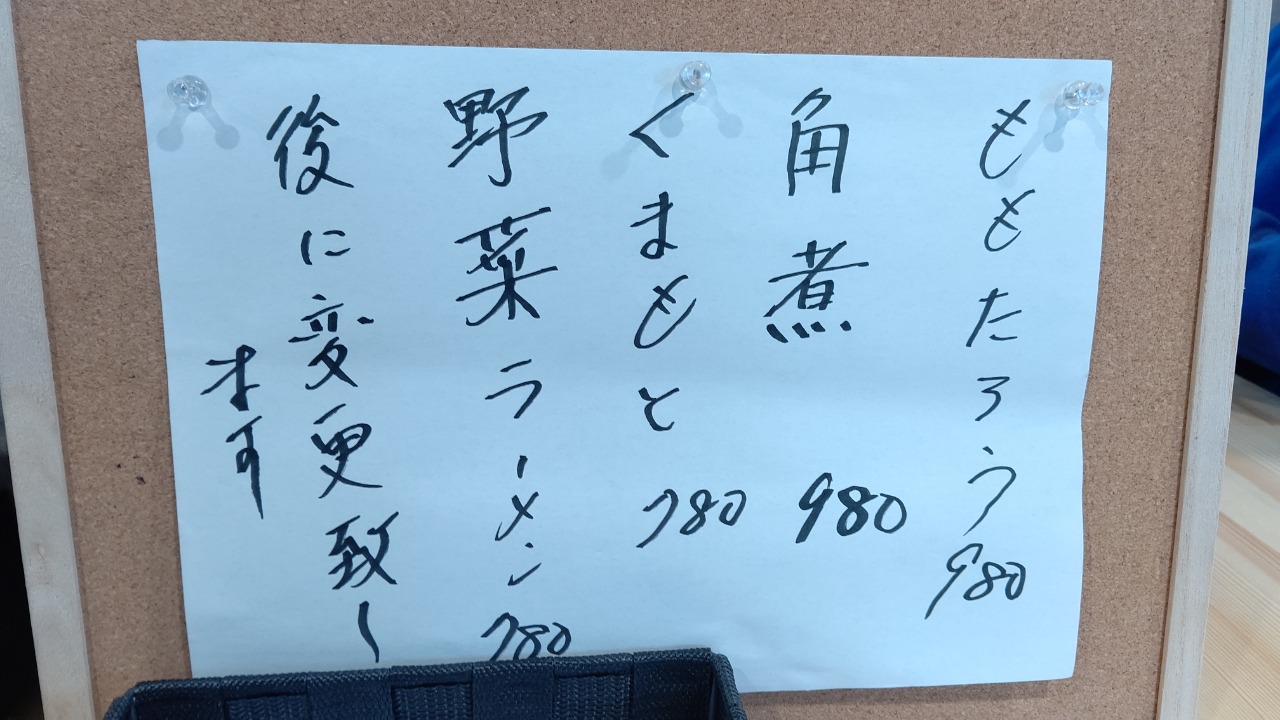 ももたろう 980
角煮 980
くまもと 780
野菜ラーメン 780
後に変更致し
ます